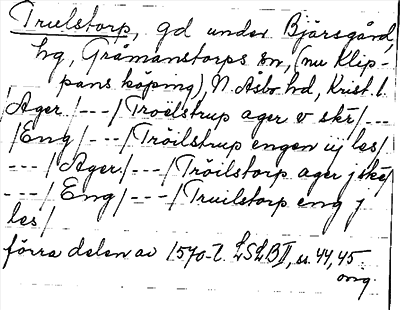 Truelstorp, gd under Bjärsgård,
hg, Gråmanstorps sn, (nu Klip-
pans köping), N. Åsbo hd, Krist. l.
Ager /---/ Troelstrup ager v skr /---
/ Eng /---/ Tröilstrup engen uj les /
--- / Ager /---/ Tröilstorp ager j skr /
--- / Eng /---/ Truilstorp eng j
les /
förra delen av 1570-t. LSLB II, s. 44, 45
orig.